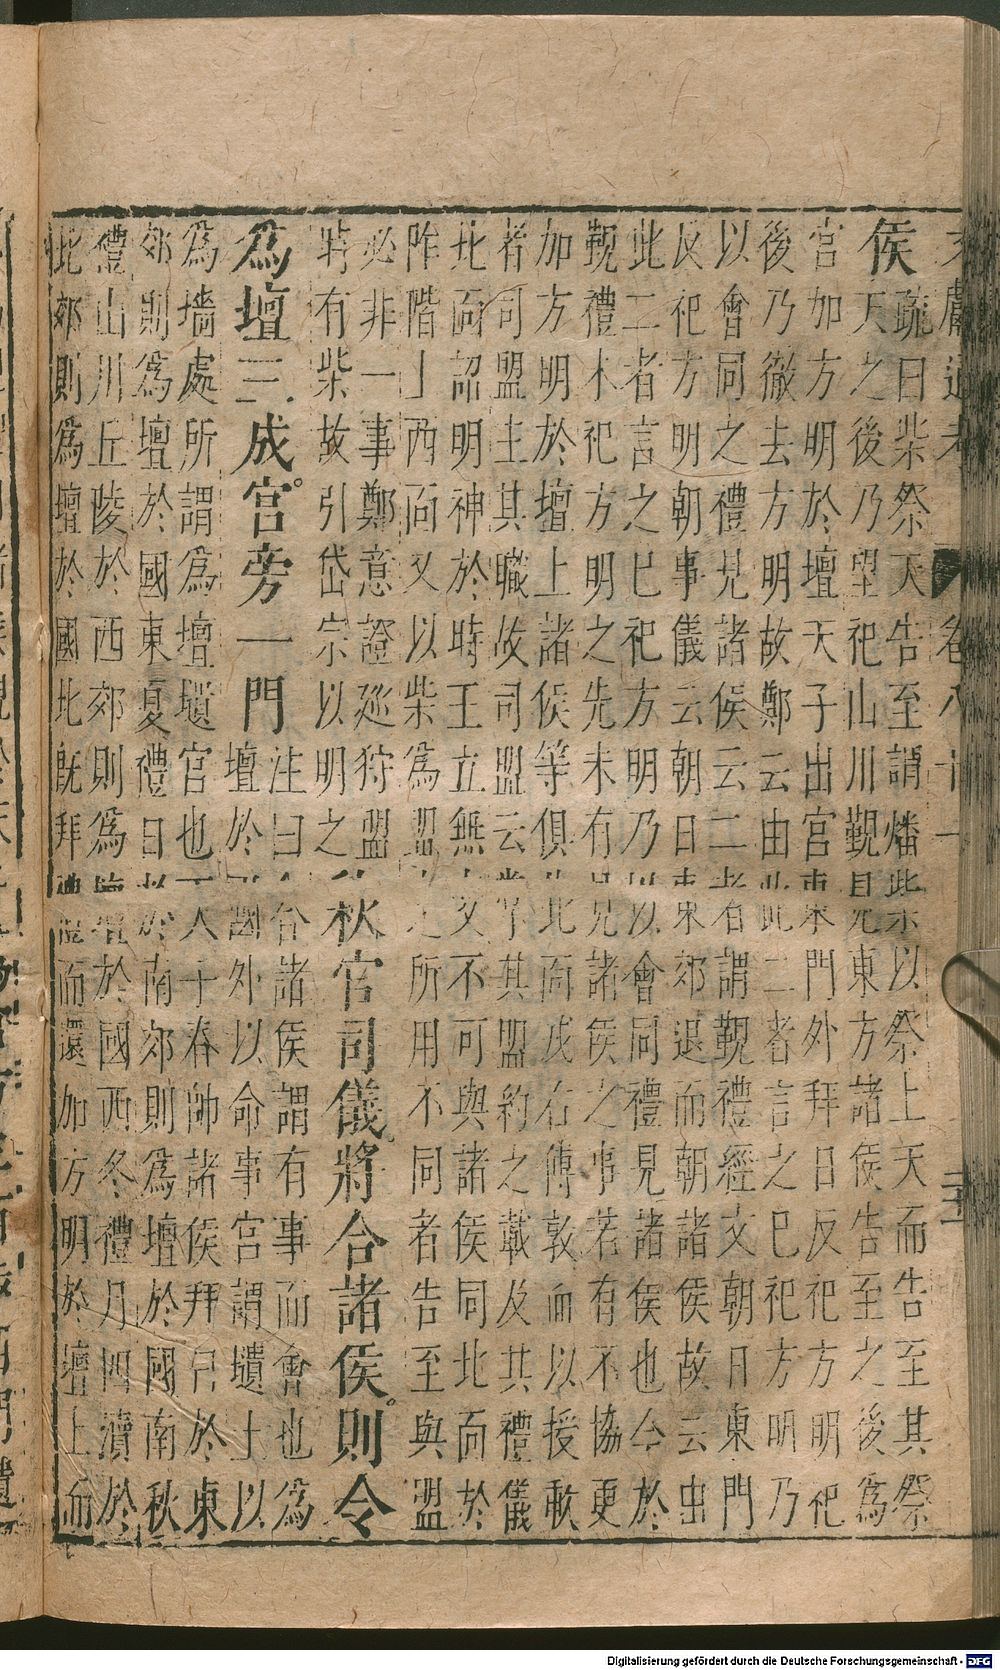 文獻通考 卷八十一
侯疏曰柴祭天告至謂燔柴以祭上天而告至其祭
天之後乃望祀山川覲見東方諸侯告至之後為
宮加方明於壇天子出宮東門外拜日反祀方明祀
後乃徹去方明故鄭云由此二者言之巳祀方明乃
以會同之禮見諸侯云二者謂覲禮經文朝日東門
反祀方明朝事儀云朝日東郊退而朝諸侯故云由
此二者言之巳祀方明乃以會同禮見諸侯也今於
覲禮未祀方明之先未有見諸侯之事若有不協更
加方明於壇上諸侯等俱北面戎右傳敦而以授敢
者司盟主其職故司盟云掌其盟約之載及其禮儀
北面詔明神於時王立無文不可與諸侯同北面於
阼階上西面又以柴為盟之所用不同者告至與盟
必非一事鄭意證巡狩盟
時有柴故引岱宗以明之
秋官司儀。將合諸侯。則令
為壇三成。宮旁一門
注曰合諸侯謂有事而會也為
壇於國外以命事宮謂壝土以
為墻處所謂為壇壝宮也天子春帥諸侯拜日於東
郊則為壇於國東夏禮日於南郊則為壇於國南秋
禮山川丘陵於西郊則為壇於國西冬禮月四瀆於
北郊則為壇於國北既拜禮而還加方明於壇上而
Digitalisierung gefördert durch die Deutsche Forschungsgemeinschaft - DFG